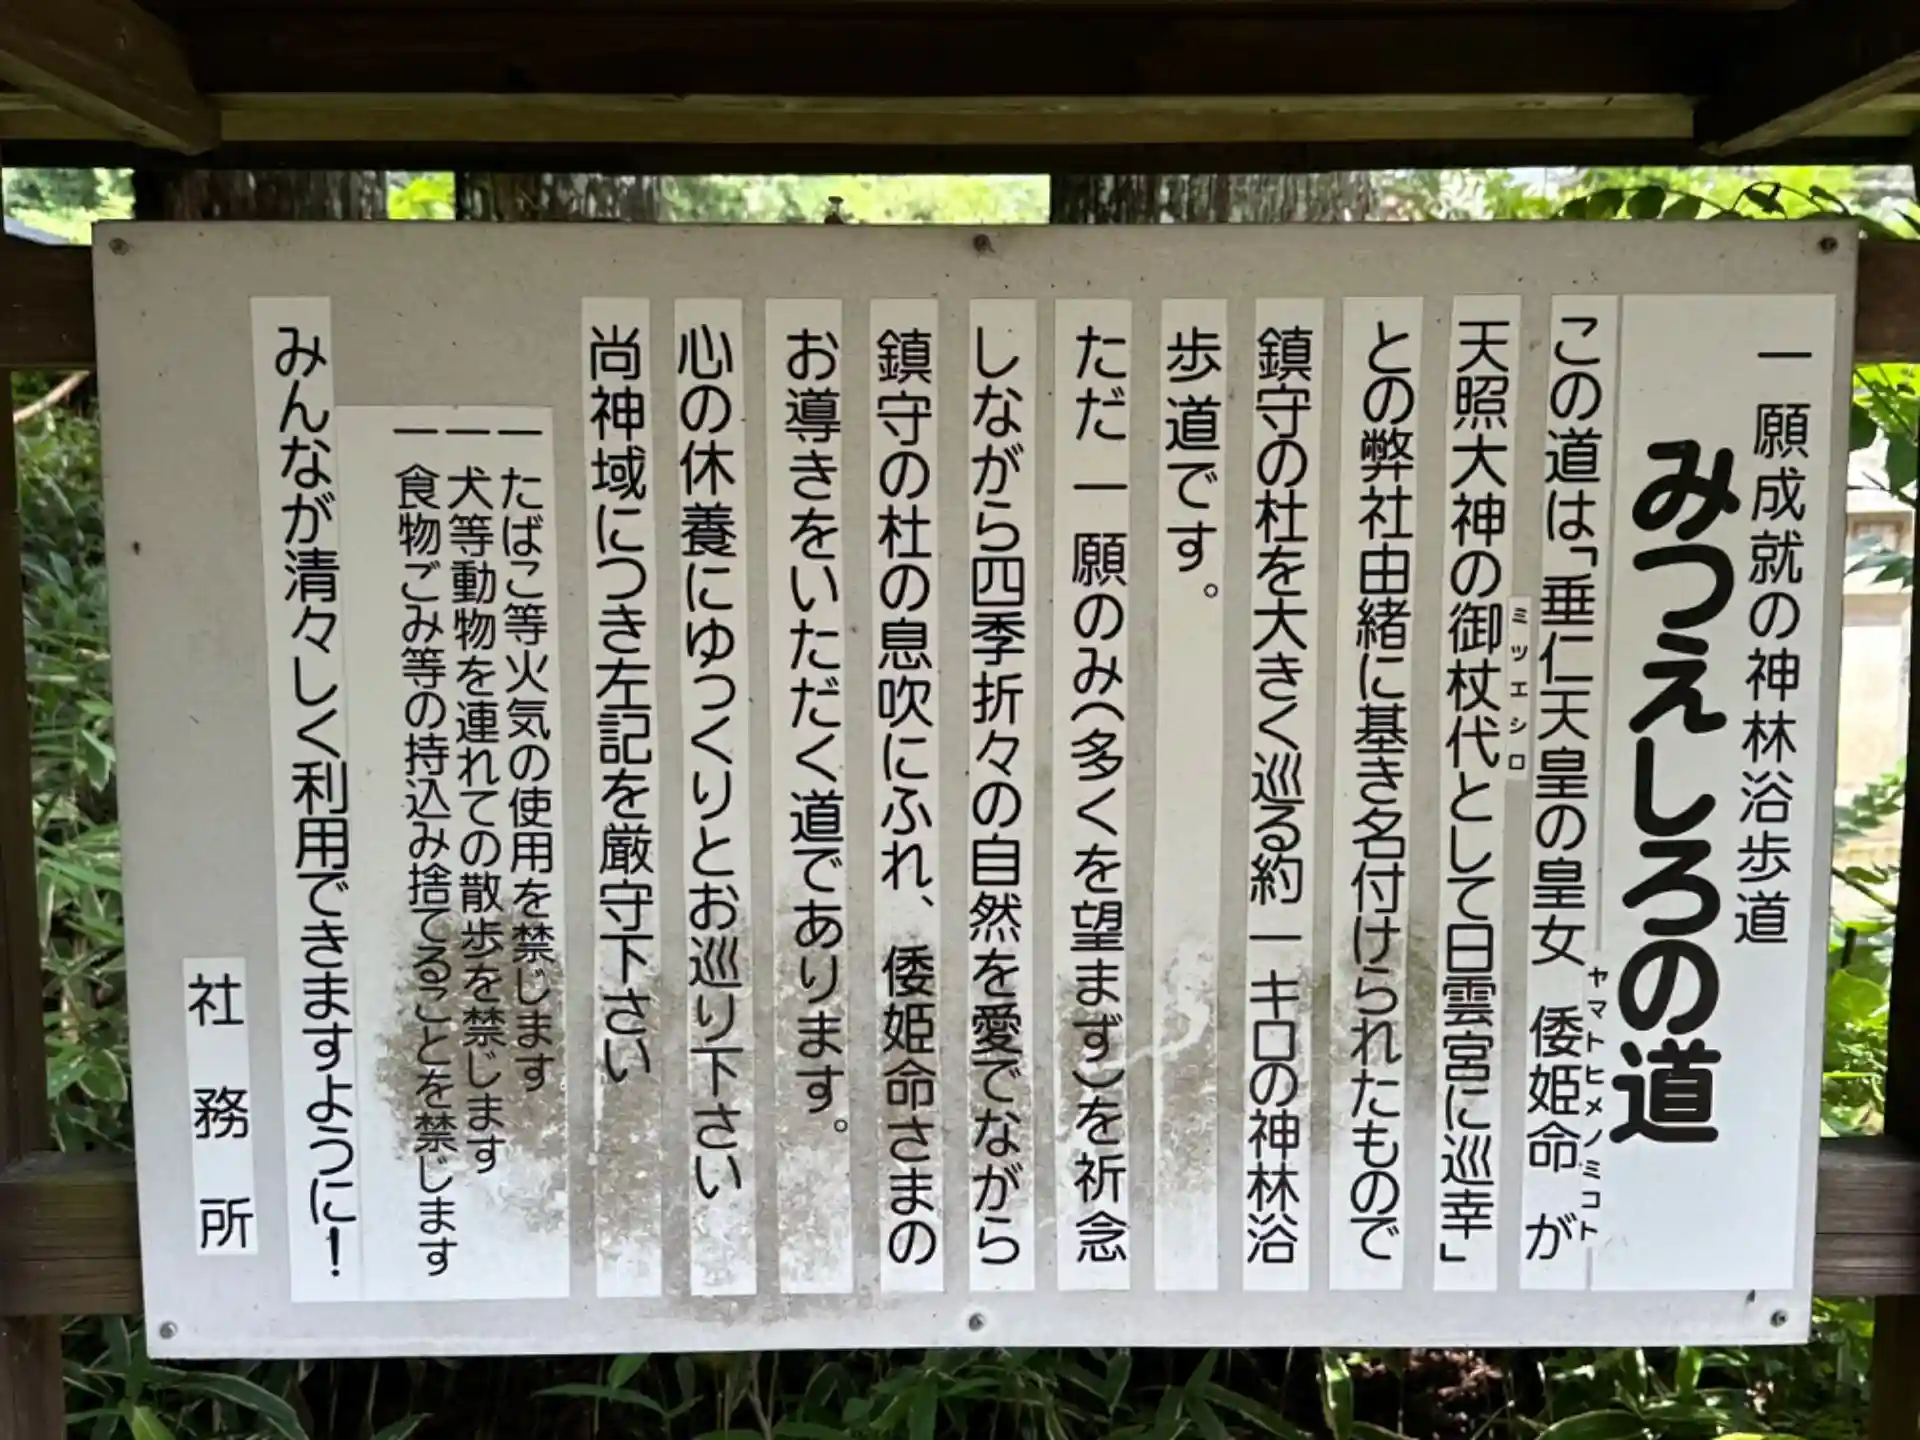 一願成就の神林浴歩道
みつえしろの道
この道は「垂仁天皇の皇女 倭姫命 が
ヤマトヒメノミコト
天照大神の御杖代として日雲宮に巡幸」
ミツエシロ
との弊社由緒に基き名付けられたもので
鎮守の杜を大きく巡る約一キロの神林浴
歩道です。
ただ一願のみ(多くを望まず)を祈念
しながら四季折々の自然を愛でながら
鎮守の杜の息吹にふれ、倭姫命さまの
お導きをいただく道であります。
心の休養にゆっくりとお巡り下さい
尚神域につき左記を厳守下さい
一 たばこ等火気の使用を禁じます
一 犬等動物を連れての散歩を禁じます
一 食物ごみ等の持込み捨てることを禁じます
みんなが清々しく利用できますように!
社務所